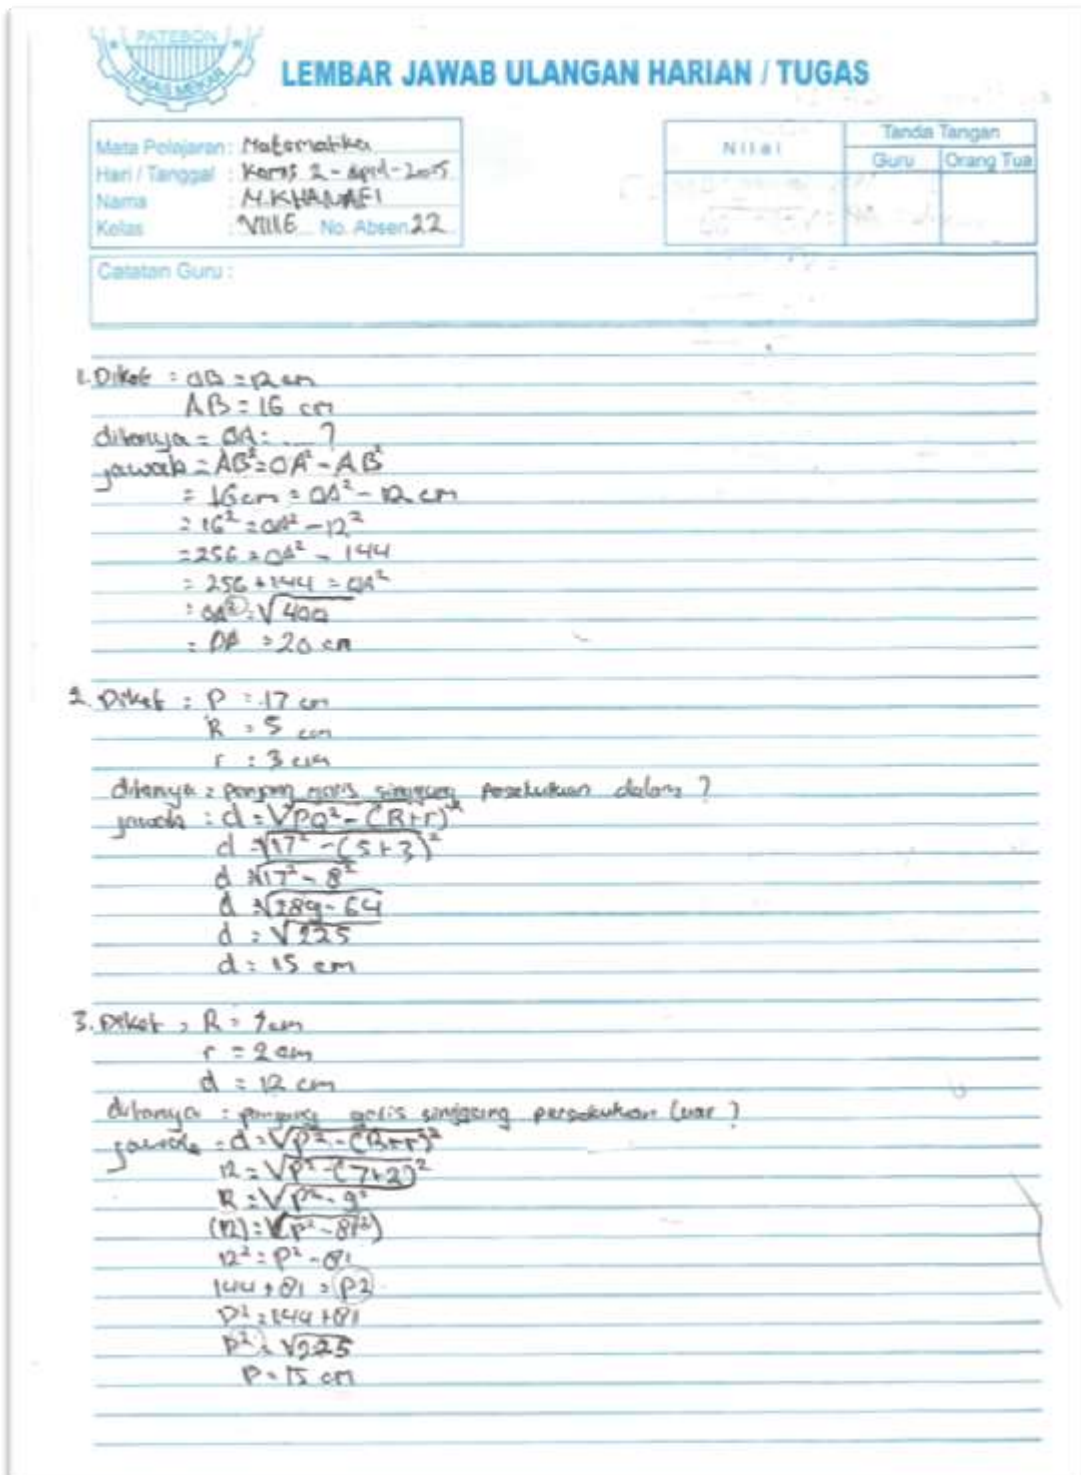 PATEBON
TUNAS MEKAR
LEMBAR JAWAB ULANGAN HARIAN / TUGAS
Mata Pelajaran : Matematika
Hari / Tanggal : Kamis 2 - April - 2015
Nama : M. KHANAFI
Kelas : VIIIE No. Absen 22
Nilai
Tanda Tangan
Guru
Orang Tua
Catatan Guru :
1. Diket : OB = 12 cm
AB = 16 cm
ditanya = OA : .... ?
jawab = AB² = OA² - AB²
= 16 cm = OA² - 12 cm
= 16² = OA² - 12²
= 256 = OA² - 144
= 256 + 144 = OA²
: OA² = √400
= OA = 20 cm
2. Diket : P = 17 cm
R = 5 cm
r : 3 cm
ditanya : panjang garis singgung persekutuan dalam ?
jawab : d = √PQ² - (R+r)²
d = √17² - (5+3)²
d = √17² - 8²
d = √289 - 64
d = √225
d = 15 cm
3. Diket : R = 7 cm
r = 2 cm
d = 12 cm
ditanya : panjang garis singgung persekutuan luar ?
jawab = d = √P² - (R+r)²
12 = √P² - (7+2)²
12 = √P² - 9²
(12) = √(P² - 81²)
12² = P² - 81
144 + 81 = P2
P² = 144 + 81
P² = √225
P = 15 cm